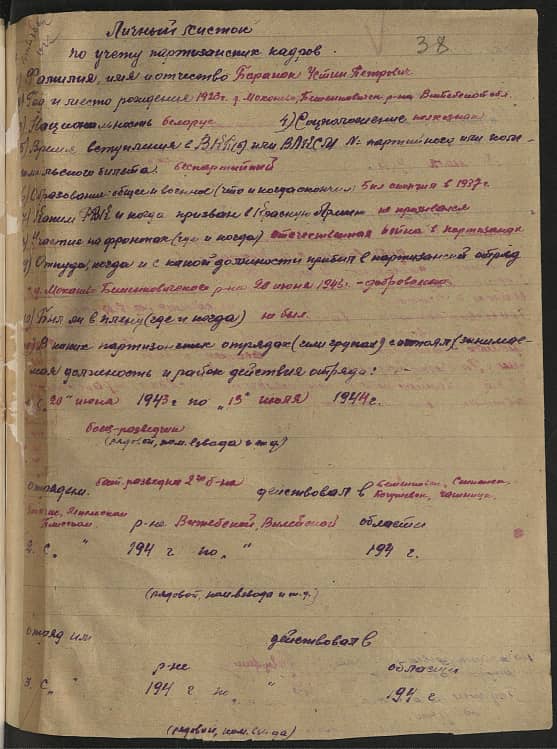 Личный листок
38
по учету партизанских кадров.
Фамилия, имя и отчество Баранок Устин Петрович
2) Год и место рождения 1923 г. д. Мокашво Бешенковичск. р-на Витебской обл.
3) Национальность беларус 4) Соцположение колхозник
5) Время вступления в ВКП(б) или ВЛКСМ № партийного или комсо-
мольского билета. беспартийный
6) Образование: общее и военное (что и когда окончил) 5 кл окончил в 1937 г.
7) Каким РВК и когда призван в Красную Армию не призвался
8) Участие на фронтах (где и когда) отечественная война в партизанах
9) Откуда, когда и с какой должности прибыл в партизанский отряд
д. Бешенковичского р-на 20 июня 1943 г. - добровольно
10) Был ли в плену (где и когда) не был.
11) В каких партизанских отрядах (или группах) состоял (занимае-
мая должность и район действия отряда:
1. С "20" июня 1943 г по "13" июля 1944 г.
боец-разведчик
(рядовой, ком. взвода и т.д.)
отрядом. разведки 2го б-на действовал в
р-не Витебской, Вилейской области
2. С " " 194 г по " " 194 г.
(рядовой, ком. взвода и т.д.)
отрядом действовал в
р-не области
3. С " " 194 г по " " 194 г.
(рядовой, ком.